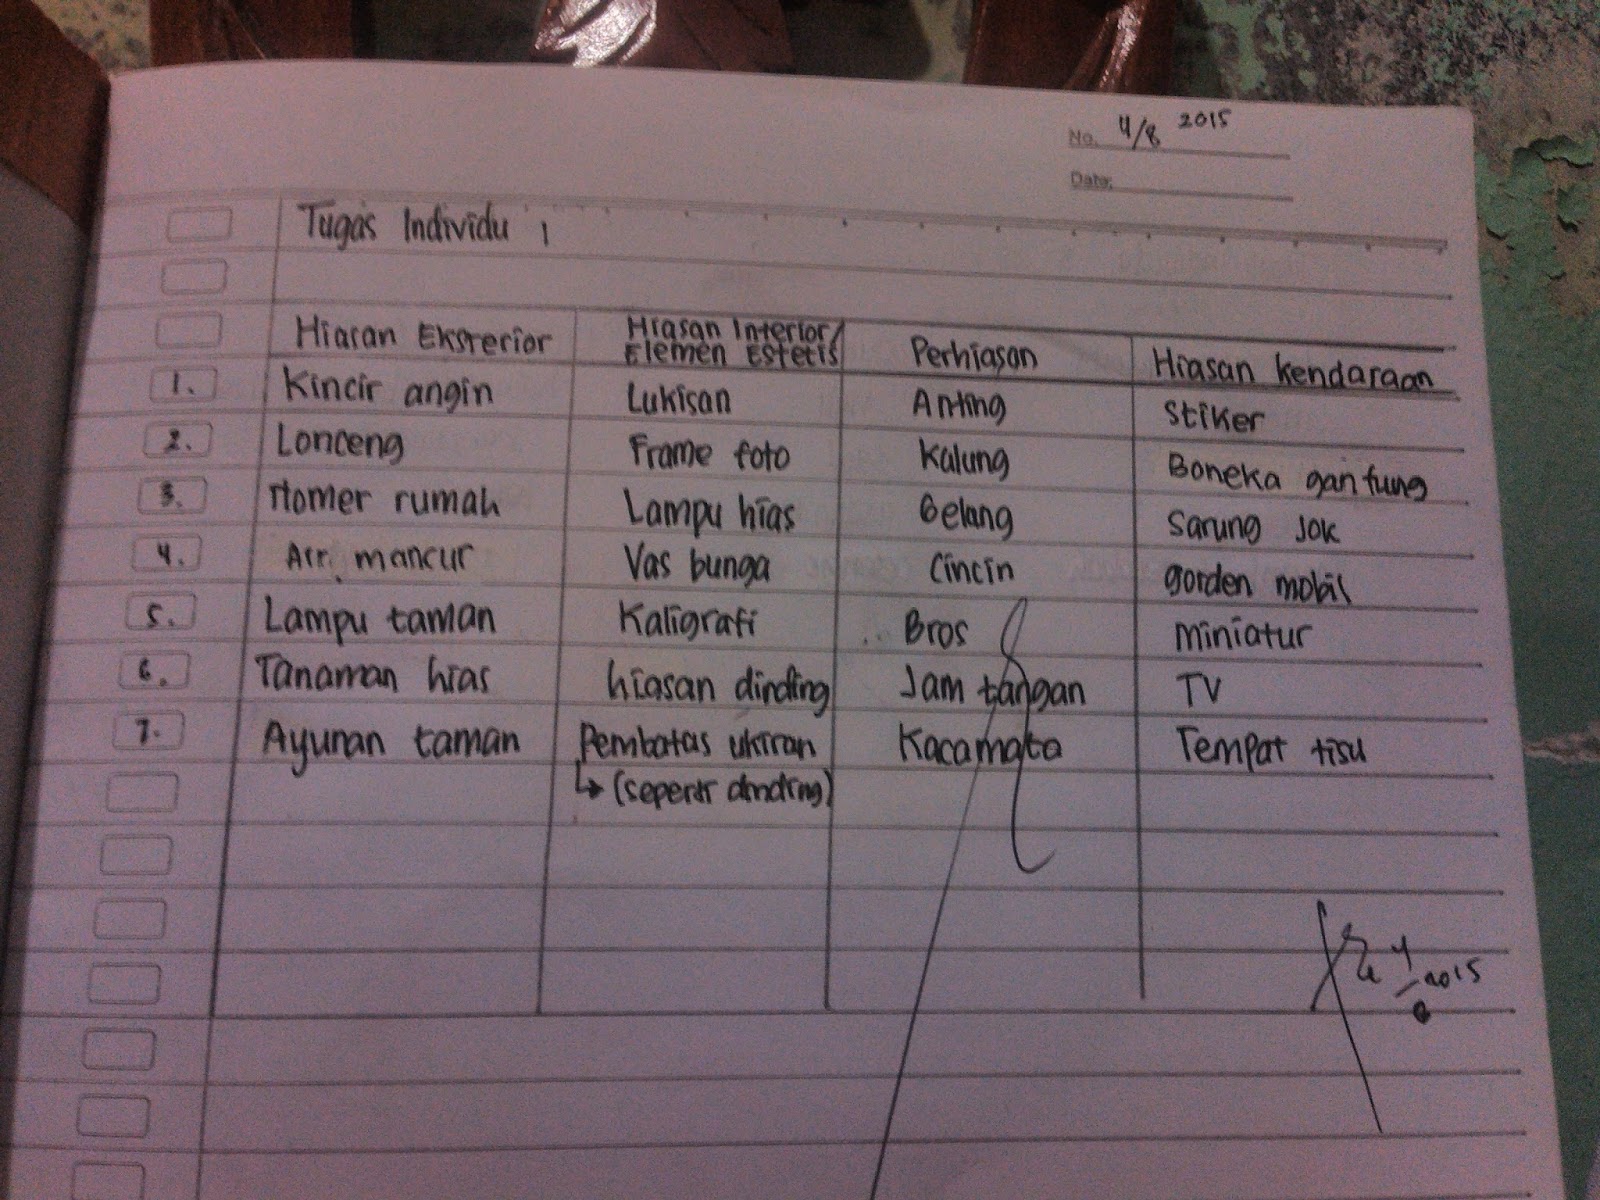 No. 4/8 2015
Date:
Tugas Individu 1
Hiasan Eksterior Hiasan Interior/ Elemen Estetis Perhiasan Hiasan kendaraan
1. Kincir angin Lukisan Anting Stiker
2. Lonceng Frame foto Kalung Boneka gantung
3. Nomer rumah Lampu hias Gelang Sarung Jok
4. Air mancur Vas bunga Cincin gorden mobil
5. Lampu taman Kaligrafi Bros miniatur
6. Tanaman hias hiasan dinding Jam tangan TV
7. Ayunan taman Pembatas ukiran Kacamata Tempat tisu
↳ (seperti dinding)
4/8 2015